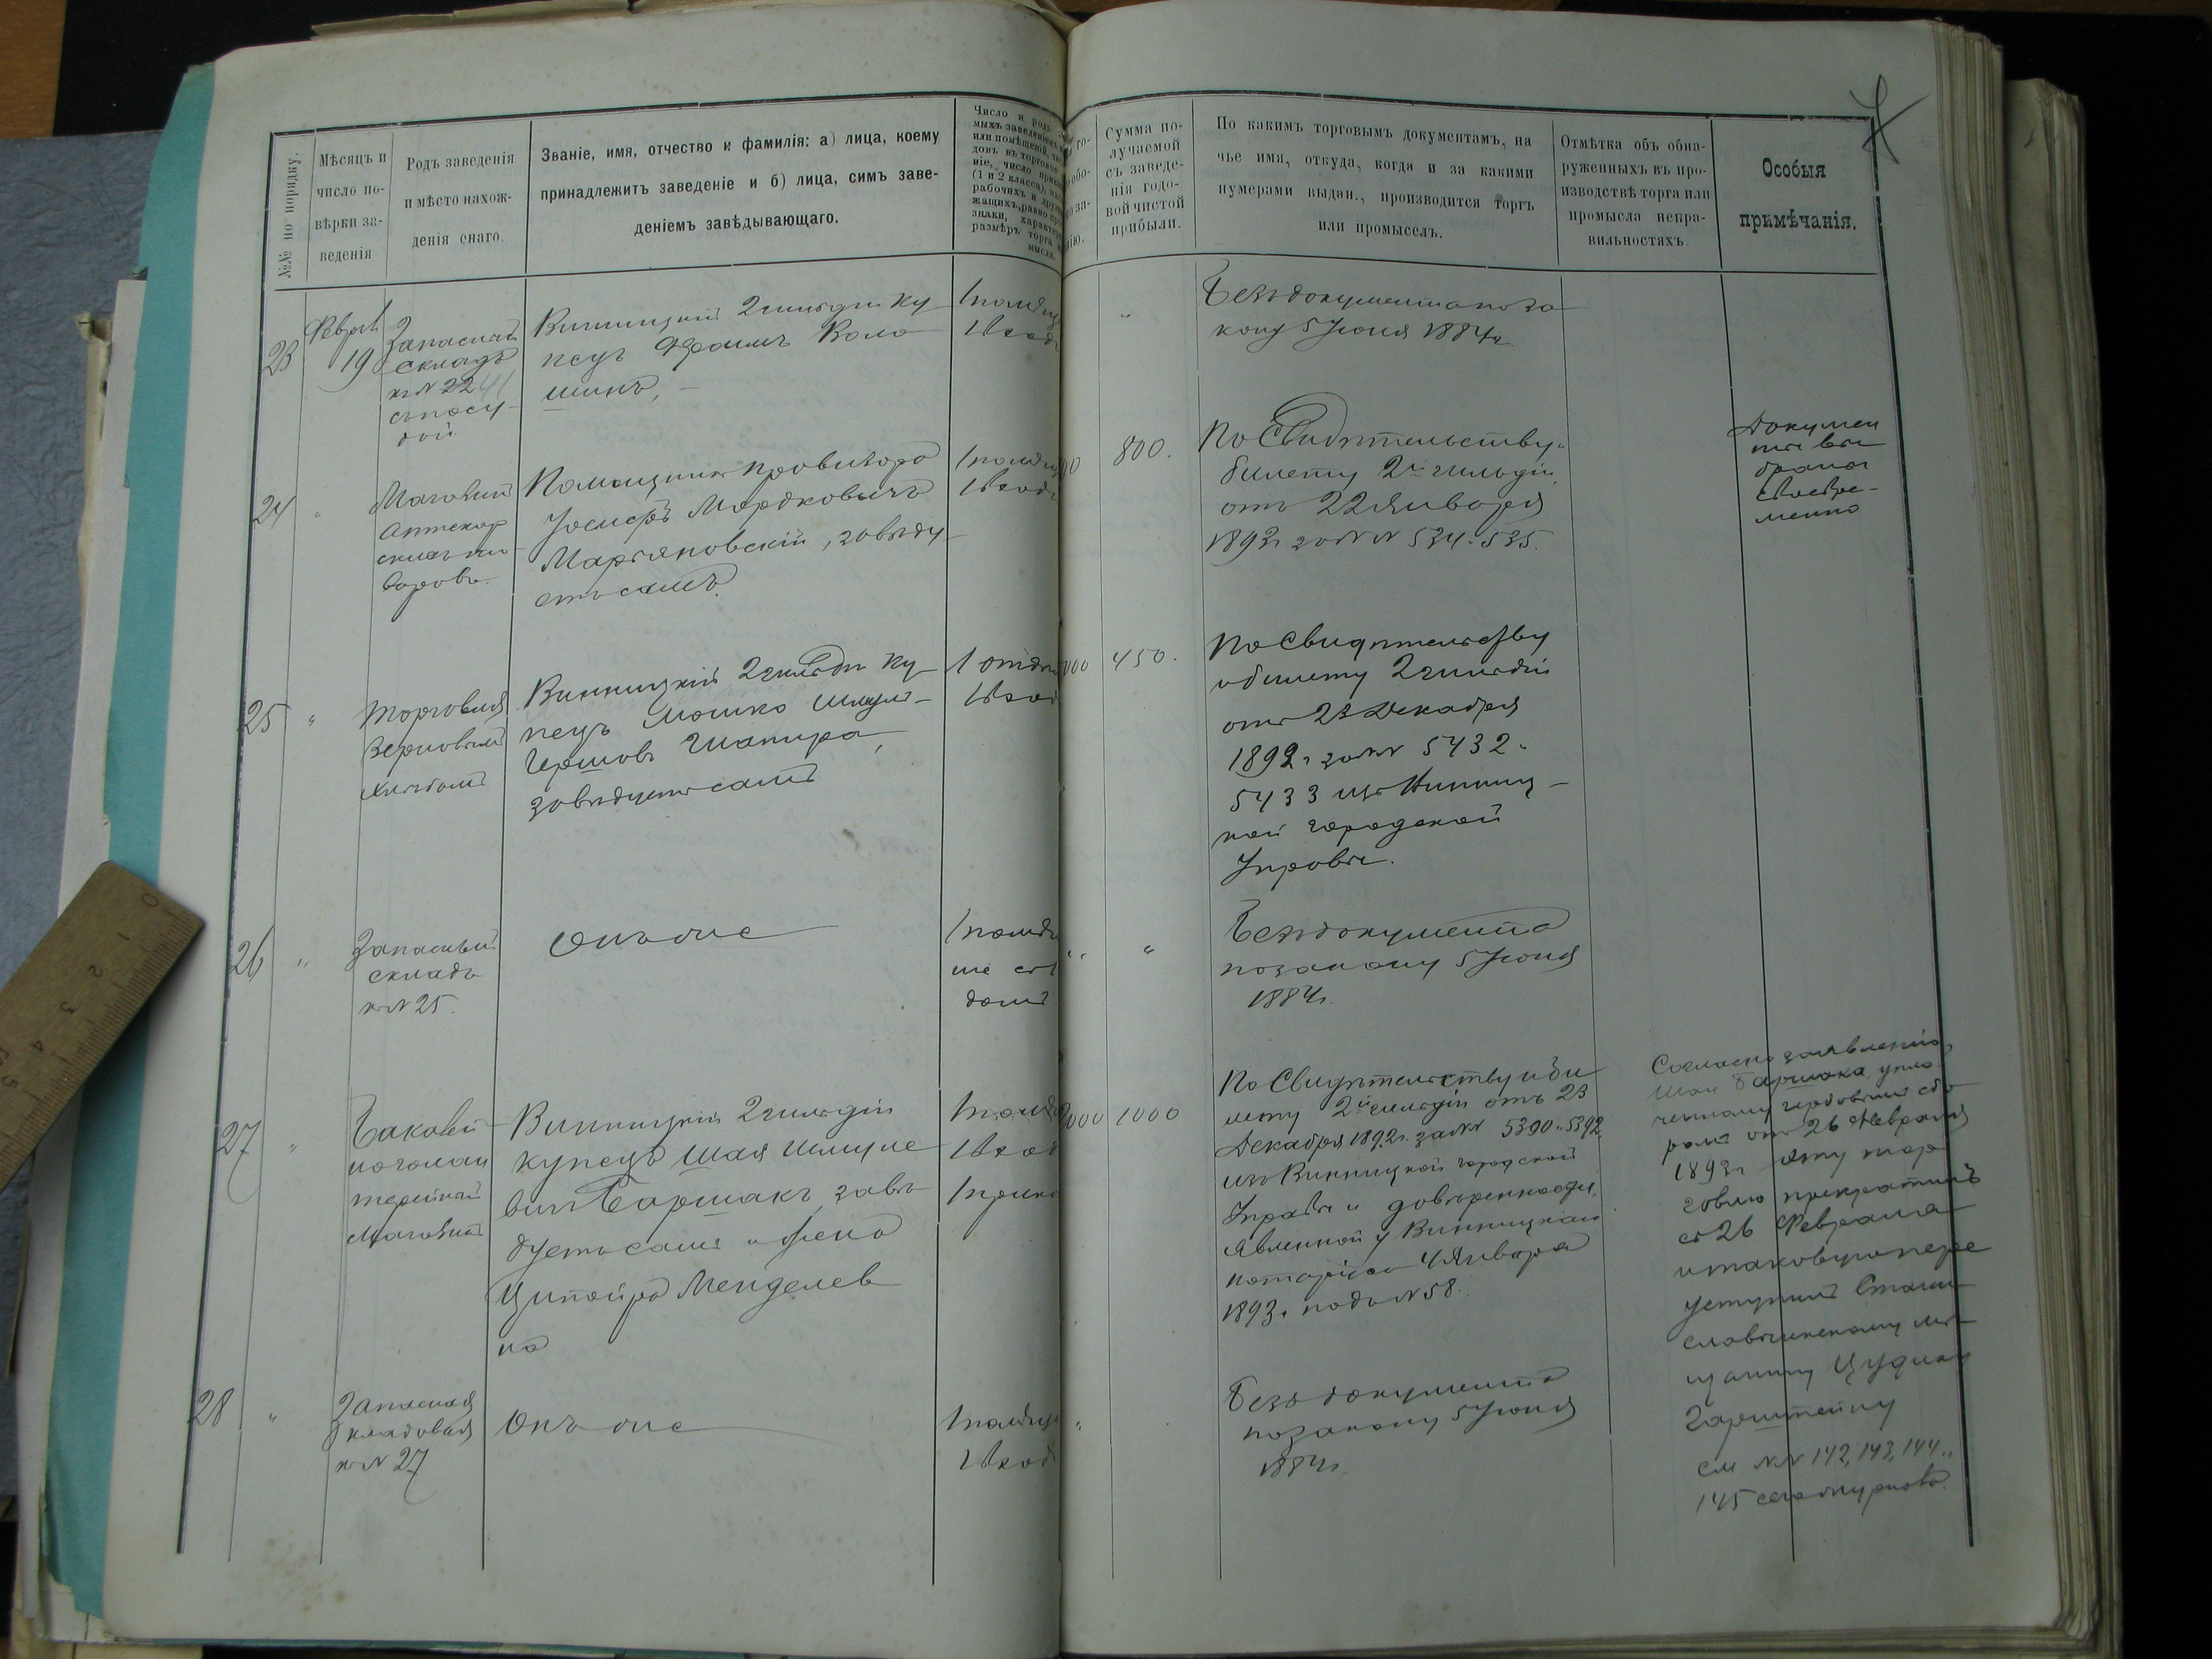 №№ по порядку.
Мѣсяцъ и
число по-
вѣрки за-
ведснія
Родъ заведенія
и мѣсто нахож-
денія онаго.
Званіе, имя, отчество и фамилія: а) лица, коему
принадлежитъ заведеніе и б) лица, симъ заве-
деніемъ завѣдывающаго.
Число и родъ
мыхъ заведеніемъ
или помѣщеній,
довъ въ торговое
ніе, число
(1 и 2 класса),
рабочихъ и
жащихъ, равно
знаки,
размѣръ торга
мысла.
Сумма по-
лучаемой
съ заведе-
нія годо-
вой чистой
прибыли.
По какимъ торговымъ документамъ, на
чье имя, откуда, когда и за какими
нумерами выдан., производится торгъ
или промыселъ.
Отмѣтка объ обна-
руженныхъ въ про-
изводствѣ торга или
промысла непра-
вильностяхъ.
Особыя
примѣчанія.
23
Феврал
19
Запасный
складъ
къ N 22
съ посу-
дой
Винницкій 2 гильдіи ку
пецъ Фроимъ Воло
шинъ, –
1 помѣщ
1 входъ
"
Безъ документа по за
кону 5 Іюня 1884 г.
24
"
Магазинъ
Аптекар
скихъ то
варовъ.
Помощникъ провизора
Іосифъ Мордковичъ
Марьяновскій, завѣду
етъ самъ.
1 помѣщ
1 входъ
00
800.
По Свидѣтельству и
билету 2й гильдіи
отъ 22 Января
1893 г за N N 534 и 535.
Докумен
ты вы
браны
своевре-
менно
25
"
Торговля
Зерновымъ
хлѣбомъ
Винницкій 2 гильдіи ку
пецъ Мошко Шмуль-
Гершовъ Шапира,
завѣдуетъ самъ
1 отдѣл
1 вход
000
450.
По Свидѣтельству
и билету 2 гильдіи
отъ 23 Декабря
1892 г за NN 5432 и
5433 изъ Винниц –
кой городской
Управы.
26
"
Запасный
складъ
къ N 25.
Онъ же
1 помѣщ
ніе съ 1
домъ
"
"
Безъ документа
по закону 5 Іюня
1884 г.
27
"
Бакалей
но галан
терейный
Магазинъ
Винницкій 2 гильдіи
купецъ Шая Шмуле
вичъ Баршакъ, завѣ
дуетъ самъ и жена
Ципойра Менделев
на
1 помѣщ
1 вход
1 прик
000
1000
По Свидѣтельству и би
лету 2й гильдіи отъ 23
Декабря 1892 г. за NN 5390 и 5392
изъ Винницкой городской
Управы и довѣренности,
явленной у Винницкаго
нотаріуса 4 Января
1893 г. подъ N 58.
Согласно заявленію
Шаи Баршака,
роша отъ 26 Февраля
1893 г эту тор
говлю прекратилъ
съ 26 Февраля
и таковую пере
уступилъ Стани
славчикскому мѣ
щанину Цудику
Гарштейну
см NN 142, 143, 144 и
145 сего журнала.
28
"
Запасная
кладовая
къ N 27
Онъ же
1 помѣщ
1 вход
"
Безъ документа
по закону 5 Іюня
1884 г.